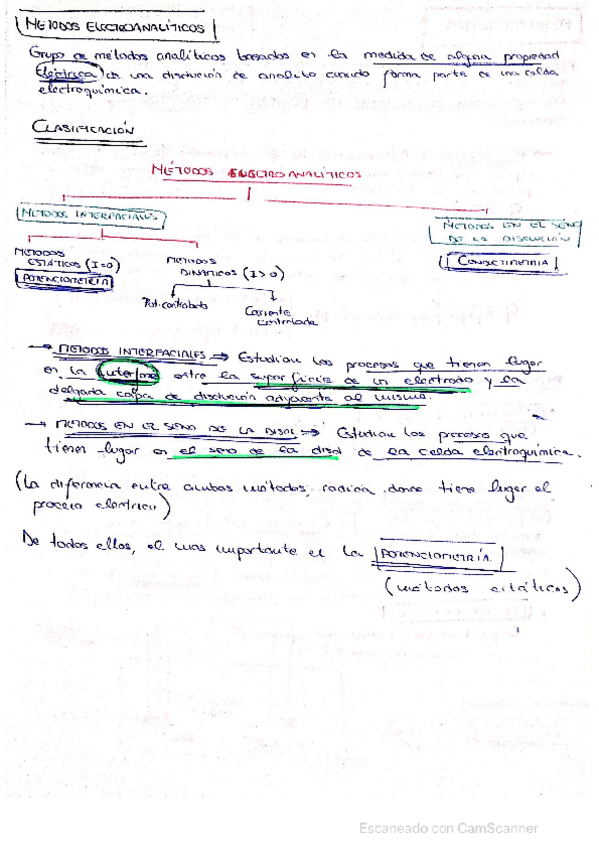 METODOS ELECTROANALÍTICOS
Grupo de métodos analíticos basados en la medida de alguna propiedad
Eléctrica de una disolución de analito cuando forma parte de una celda
electroquímica.
CLASIFICACIÓN
MÉTODOS ELECTROANALÍTICOS
METODOS INTERFACIALES
METODOS EN EL SENO
DE LA DISOLUCIÓN
METODOS
ESTÁTICOS (I=0)
POTENCIOMETRÍA
METODOS
DINAMICOS (I>0)
CONDUCTIMETRIA
Pot. controlado
Corriente
controlada
→ METODOS INTERFACIALES ⇒ Estudian los procesos que tienen lugar
en la interfase entre la superficie de un electrodo y la
delgada capa de disolución adyacente al mismo.
→ METODOS EN EL SENO DE LA DISOL ⇒ Estudian los procesos que
tienen lugar en el seno de la disol de la celda electroquímica.
(La diferencia entre ambos métodos, radica donde tiene lugar el
proceso electrico)
De todos ellos, el mas importante es la POTENCIOMETRÍA
(métodos estáticos)
Escaneado con CamScanner